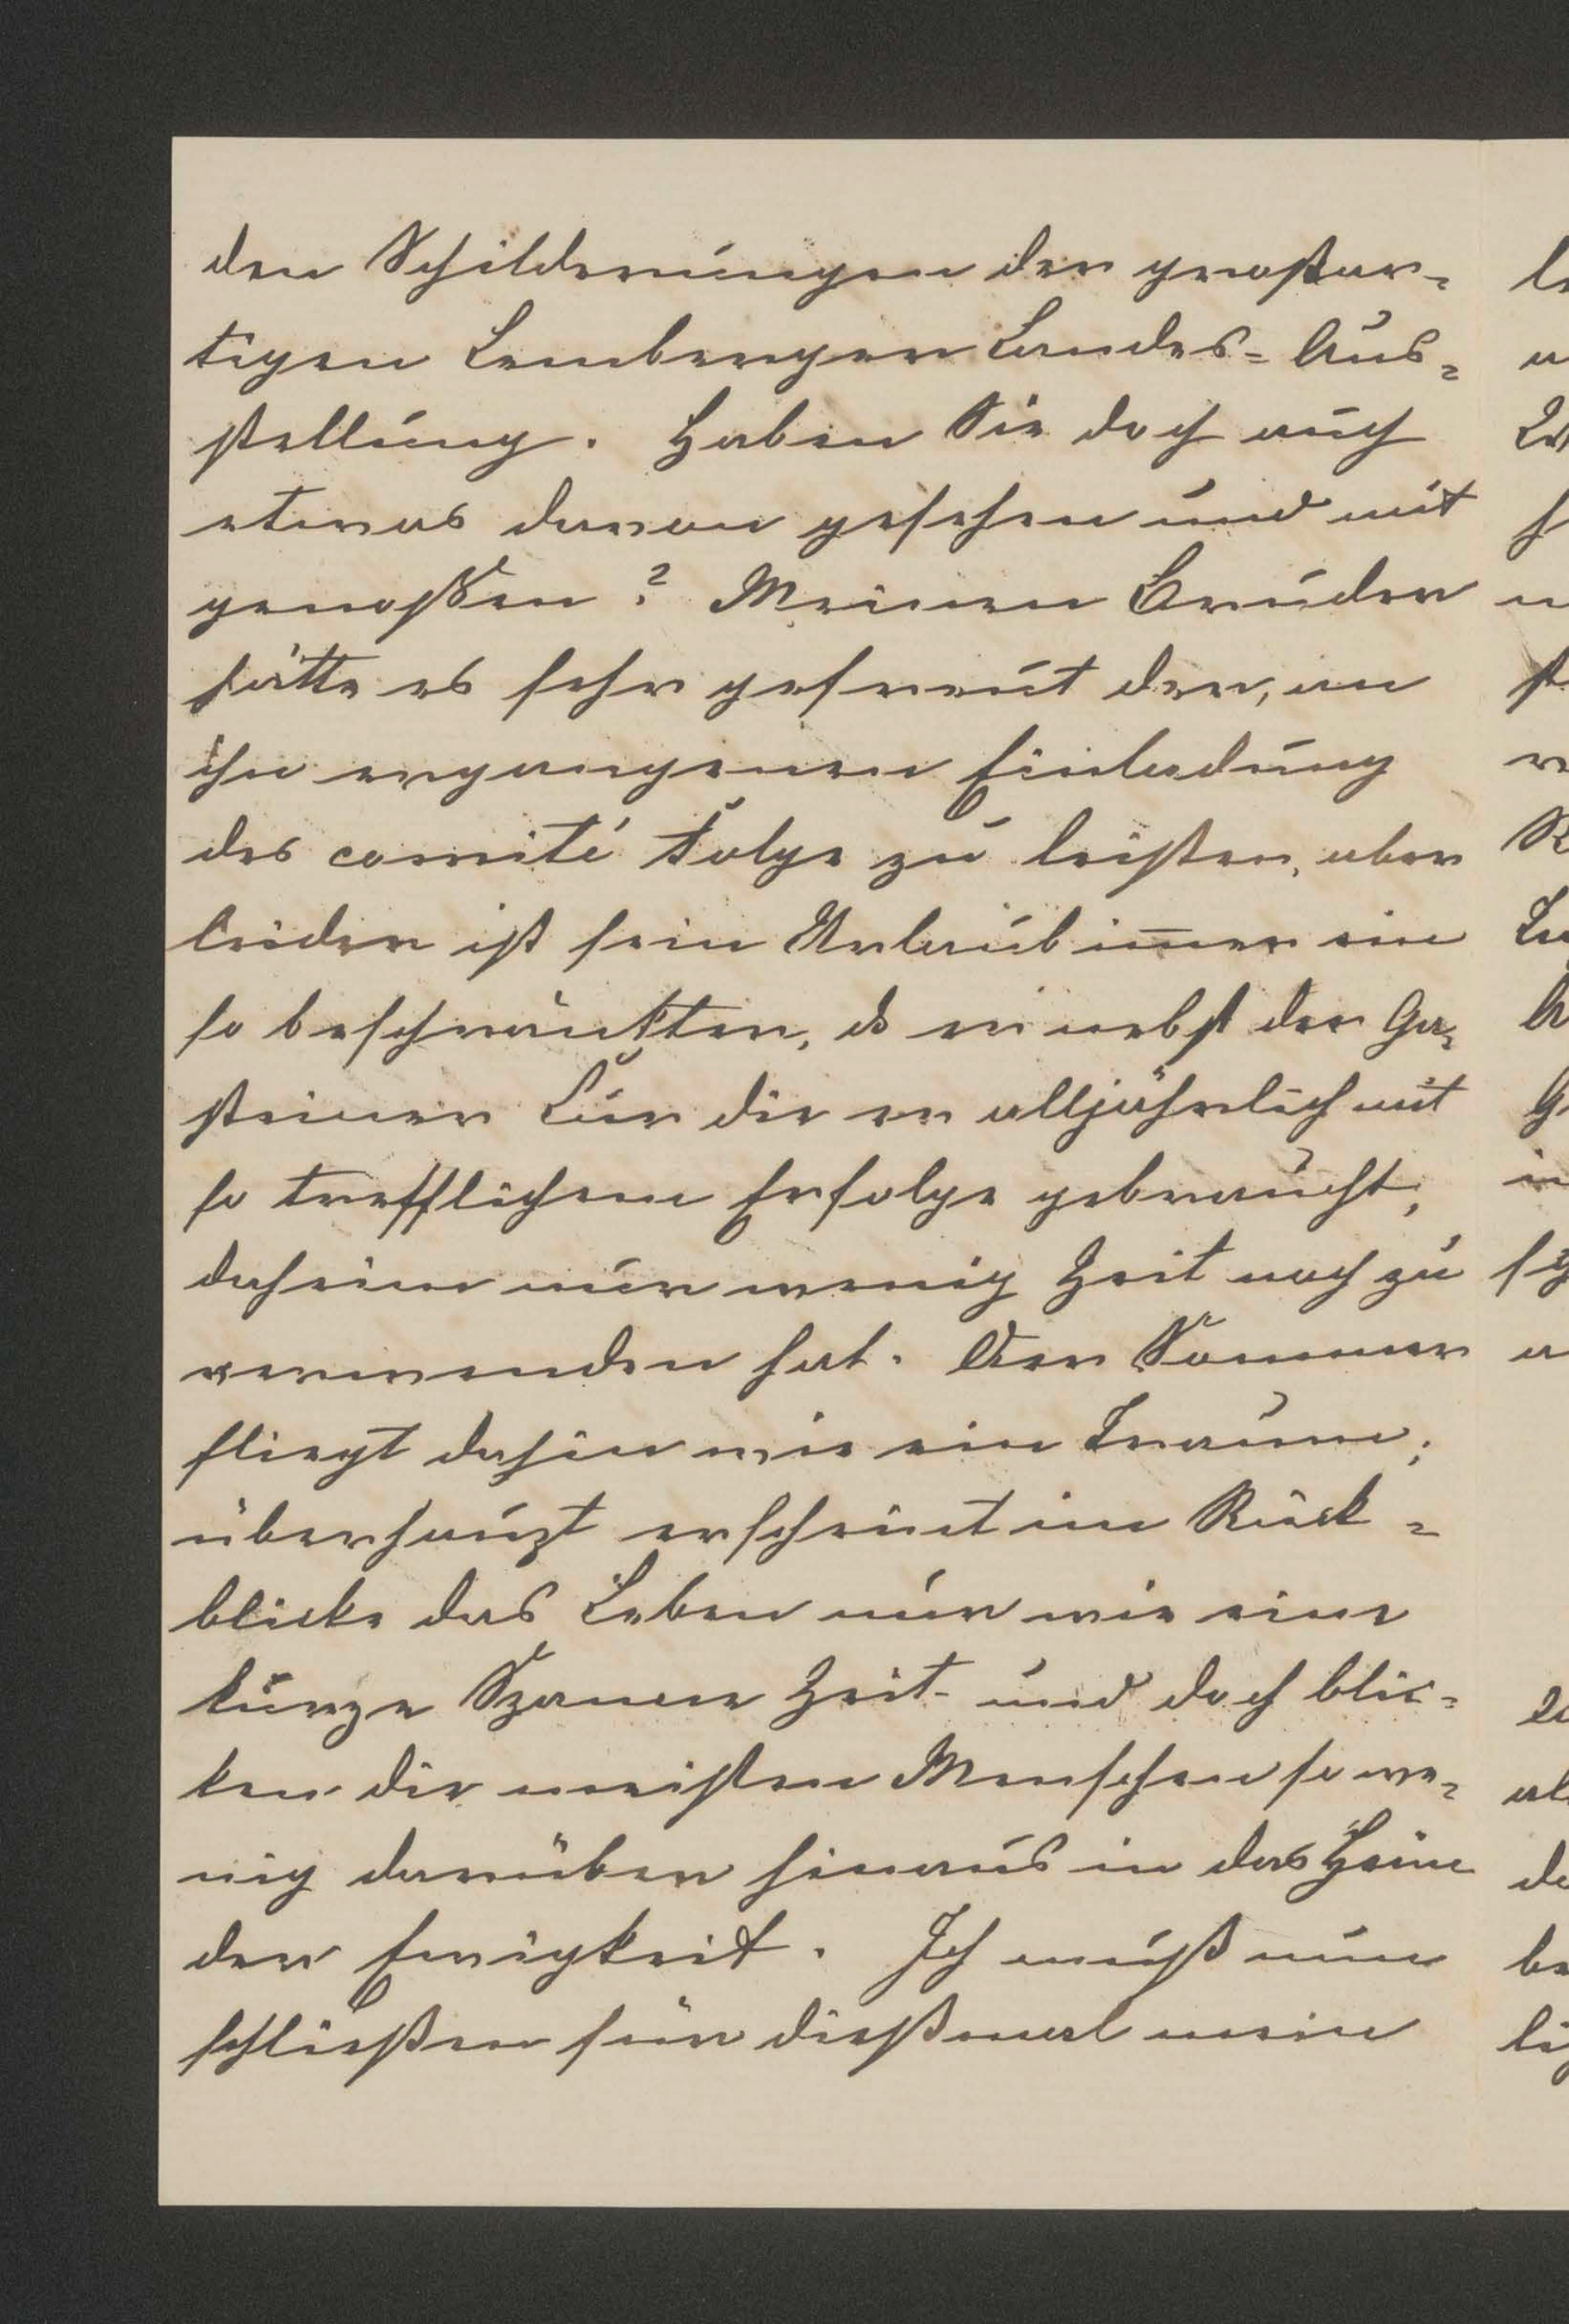 den Schilderungen der großar-
tigen Lemberger Landes-Aus-
stellung. Haben Sie doch auch
etwas davon gesehen und mit
genoßen? Meinen Bruder
hätte es sehr gefreut der, an
ihn ergangenen Einladung
des comité Folge zu leisten, aber
leider ist sein Urlaub im̅er ein
so beschränkter, ds er nebst der Ga-
steiner Cur die er alljährlich mit
so trefflichem Erfolge gebraucht,
daheim nur wenig Zeit noch zu
verwenden hat. Der Sommer
fliegt dahin wie ein Traum;
überhaupt erscheint im Rück-
blicke das Leben nur wie eine
kurze Spanne Zeit und doch blic-
ken die meisten Menschen so we-
nig darüber hinaus in das Heim
der Ewigkeit. Ich muß nun
schließen für dießmal mein